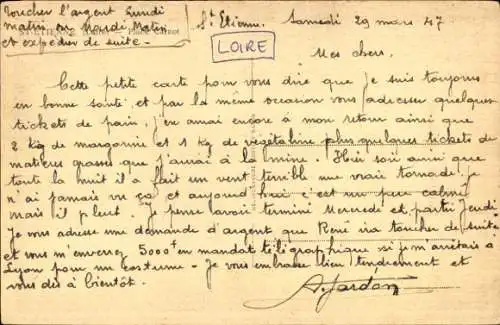 Toucher l'argent Lundi
matin ou Mardi Matin
et expédier de suite -
St Etienne. Samedi 29 mars 47
LOIRE
ST-ETIENNE Place Carnot
Mes chers.
Cette petite carte pour vous dire que je suis toujours
en bonne santé et par la même occasion vous adresser quelques
tickets de pain, j'en aurai encore à mon retour ainsi que
2 kg de margarine et 1 kg de végétaline plus quelques tickets de
matières grasses que j'aurai à la mine. Hier soir ainsi que
toute la nuit il a fait un vent terrible une vraie tornade je
n'ai jamais vu ça et aujourd'hui c'est un peu calmé
mais il pleut. Je pense avoir terminé Mercredi et partir Jeudi
Je vous adresse une demande d'argent que René ira toucher de suite
et vous m'enverrez 5000f en mandat télégraphique si je m'arrêtais à
Lyon pour un costume - Je vous embrasse bien tendrement et
vous dis à bientôt.
A. Jardon